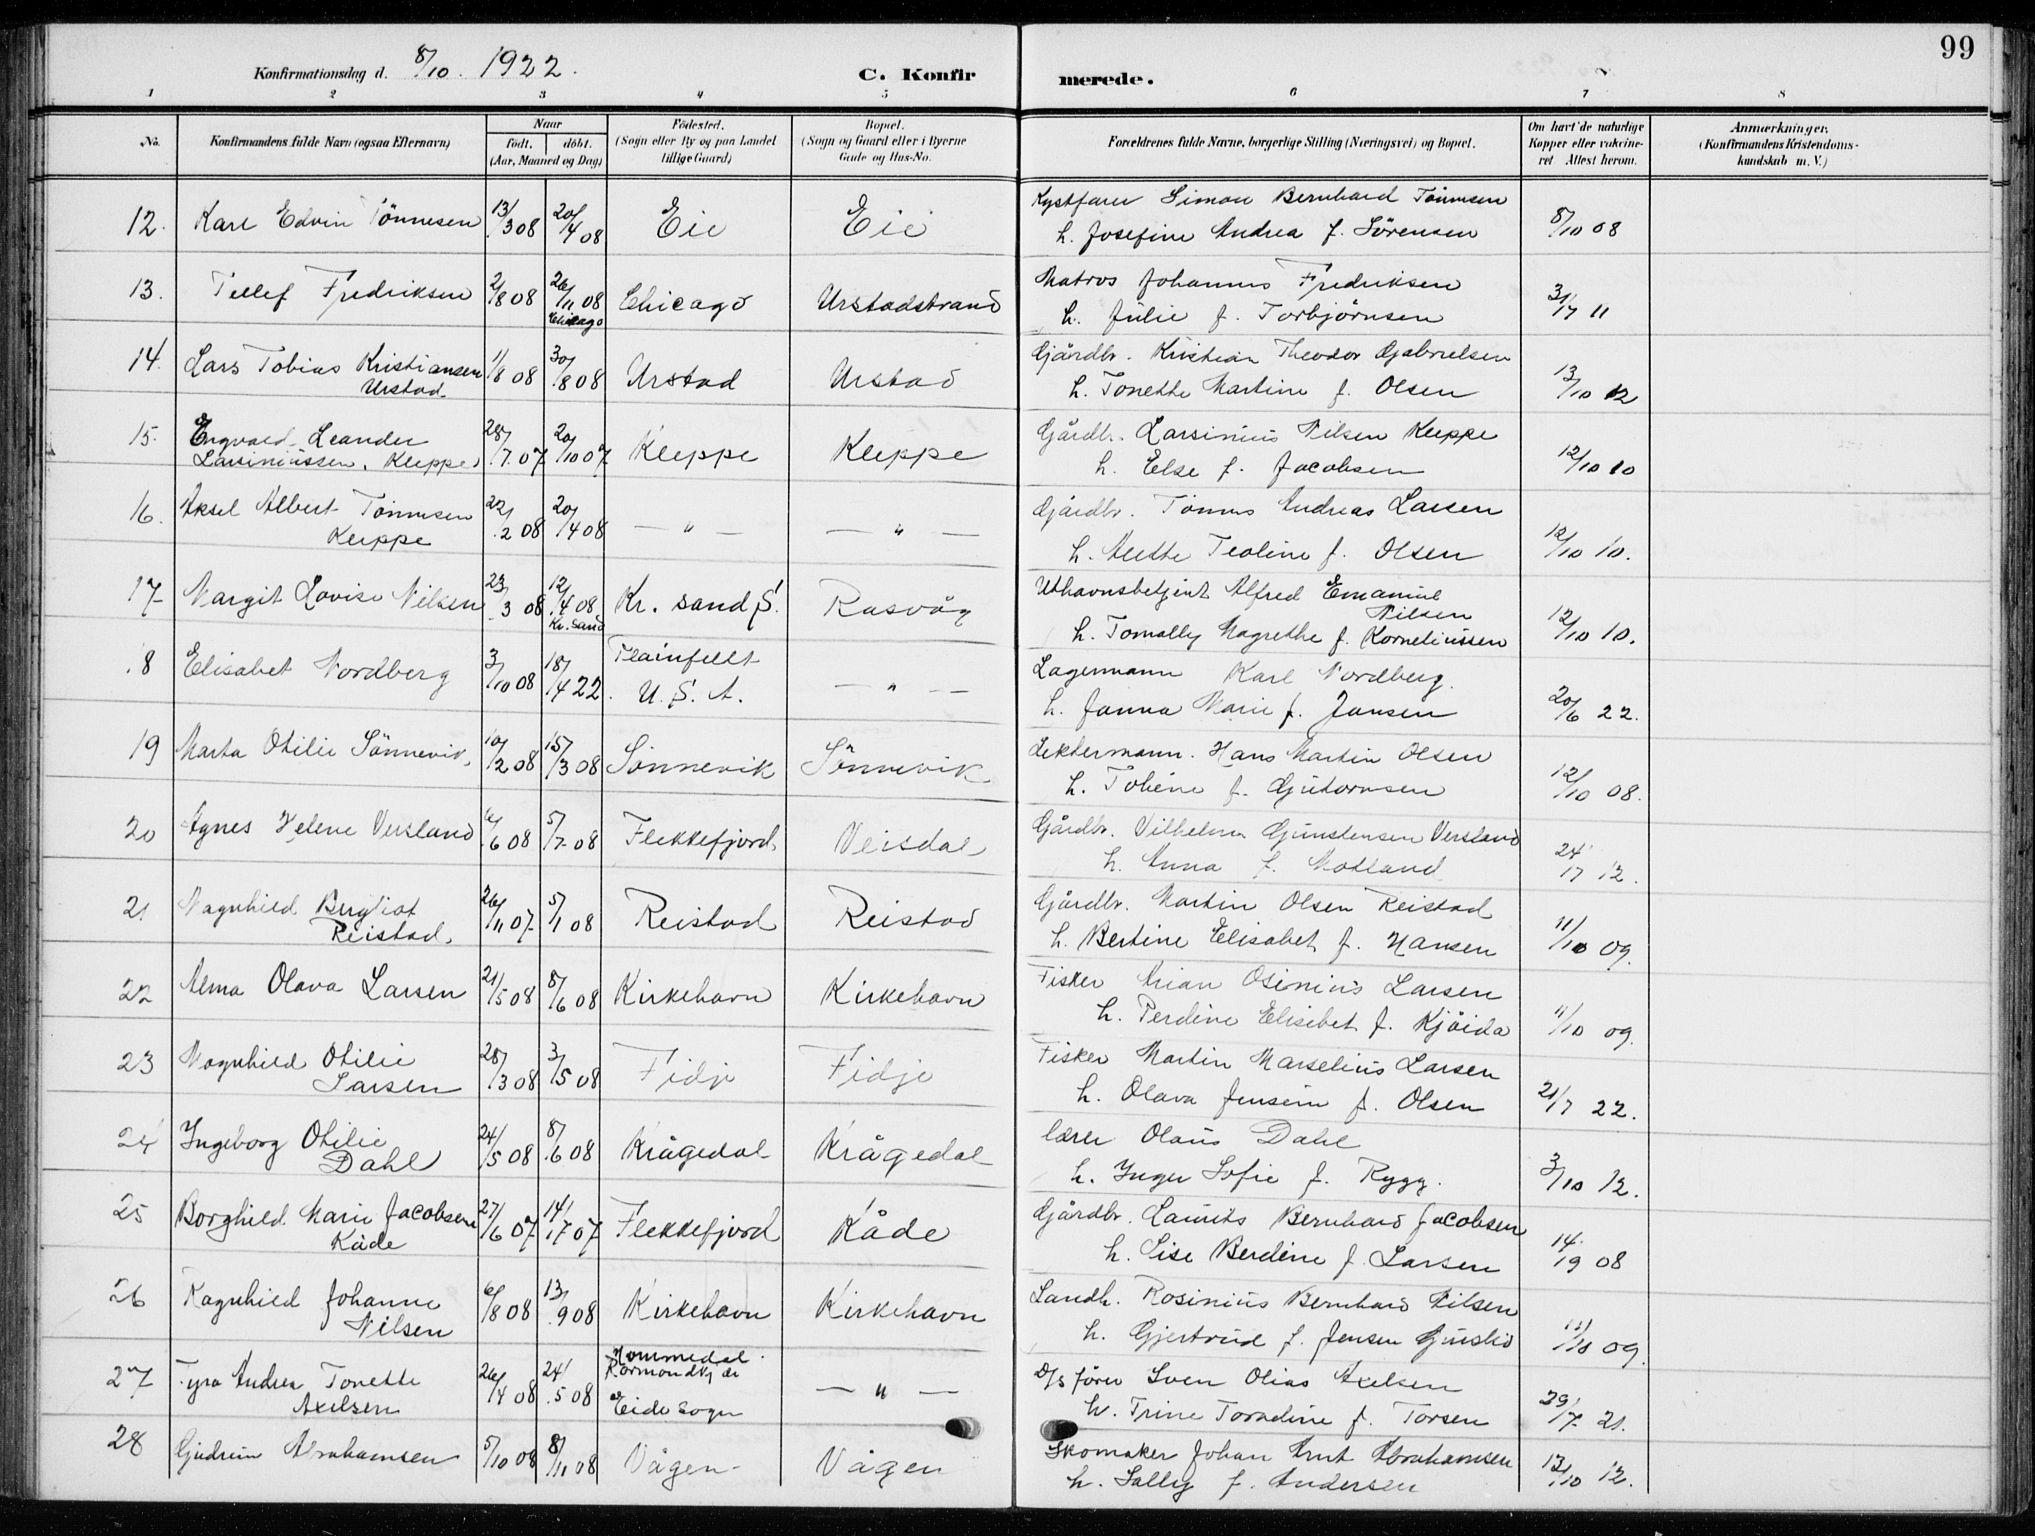 99
Konfirmationsdag d. 8/10. 1922. C. Konfirmerede.
1 2 3 4 5 6 7 8
No. Konfirmandens fulde Navn (ogsaa Efternavn) Naar født. døbt. (Aar, Maaned og Dag) Fødested. (Sogn eller By og paa Landet tillige Gaard) Bopæl. (Sogn og Gaard eller i Byerne Gade og Hus-No. Forældrenes fulde Navne, borgerlige Stilling (Næringsvei) og Bopæl. Om havt de naturlige Kopper eller vakcineret Attest herom. Anmærkninger. (Konfirmandens Kristendomskundskab m. V.)
12. Karl Edvin Tönnesen 13/3 08 20/4 08 Eie Eie Kystfarer Simon Bernhard Tönnesen
h. Josefine Andrea f. Sörensen 8/10 08
13. Tellef Fredriksen 2/8 08 26/11 08 Chicago Chicago Urstadstrand Matros Johannes Fredriksen
h. Julie f. Torbjörnsen 31/7 11
14. Lars Tobias Kristiansen Urstad 1/8 08 30/8 08 Urstad Urstad Gjårdbr. Kristian Theodor Gabrielsen
h. Tonette Martine f. Olsen 13/10 12
15. Engvald Leander Larsiniussen, Kleppe 28/7 07 20/10 07 Kleppe Kleppe Gårdbr. Larsinius Nilsen Kleppe
h. Else f. Jacobsen 12/10 10
16. Aksel Albert Tönnesen Kleppe 22/2 08 20/4 08 — " — — " — Gjårdbr. Tönnes Andreas Larsen
h. Teoline f. Olsen 12/10 10.
17 Margit Lovise Nilsen 23/3 08 12/4 08 Kr. sand Kr. sand S. Rasvåg Uthavnsbetjent Alfred Emanuel Nilsen
h. Tomally Magrethe f. Korneliussen 12/10 10.
18 Elisabet Nordberg 3/10 08 18/4 22 Plainfield U. S. A. — " — Lagermann Karl Nordberg.
h. Janna Marie f. Jansen 20/6 22.
19 Marta Otilie Sönnevik, 10/2 08 15/3 08 Sönnevik Sönnevik Lektermann. Hans Martin Olsen
h. Tobine f. Gutormsen 12/10 08.
20 Agnes Helene Versland 6/6 08 5/7 08 Flekkefjord. Veisdal Gårdbr. Vilhelm Gunstensen Versland
h. Anna f. Motland 24/7 12.
21 Magnhild Bergliot Reistad. 26/11 07 5/1 08 Reistad Reistad Gjårdbr. Martin Olsen Reistad
h. Bertine Elisabet f. Hansen 11/10 09.
22 Alma Olava Larsen 21/5 08 8/6 08 Kirkehavn Kirkehavn Fisker Arian Osinius Larsen
h. Perdine Elisebet f. Kjöida 11/10 09.
23 Magnhild Otilie Larsen 28/3 08 3/5 08 Fidje Fidje Fisker Martin Marselius Larsen
h. Olava f. Olsen 21/7 22.
24 Ingeborg Otilie Dahl 24/5 08 8/6 08 Krågedal Krågedal lærer Olaus Dahl
h. Inger Sofie f. Rygg. 3/10 12.
25 Borghild Marie Jacobsen Kåde 27/6 07 14/7 07 Flekkefjord Kåde Gjårdbr. Laurits Bernhard Jacobsen
h. Lise Berdine f. Larsen 14/9 08
26 Ragnhild Johanne Nilsen 6/8 08 13/9 08 Kirkehavn Kirkehavn Landh. Rosinius Bernhard Nilsen
h. Gjertrud f. Jensen 11/10 09.
27 Tyra Andrea Tonette Axelsen 26/4 08 24/5 08 Hommedal Eide Sogn — " — D/s förer Sven Olias Axelsen
h. Trine Tomdine f. Torsen 29/7 21.
28 Gudrun Abrahamsen 5/10 08 8/11 08 Vågen Vågen Skomaker Johan Arnt Abrahamsen
h. Sally f. Andersen 12/10 12.